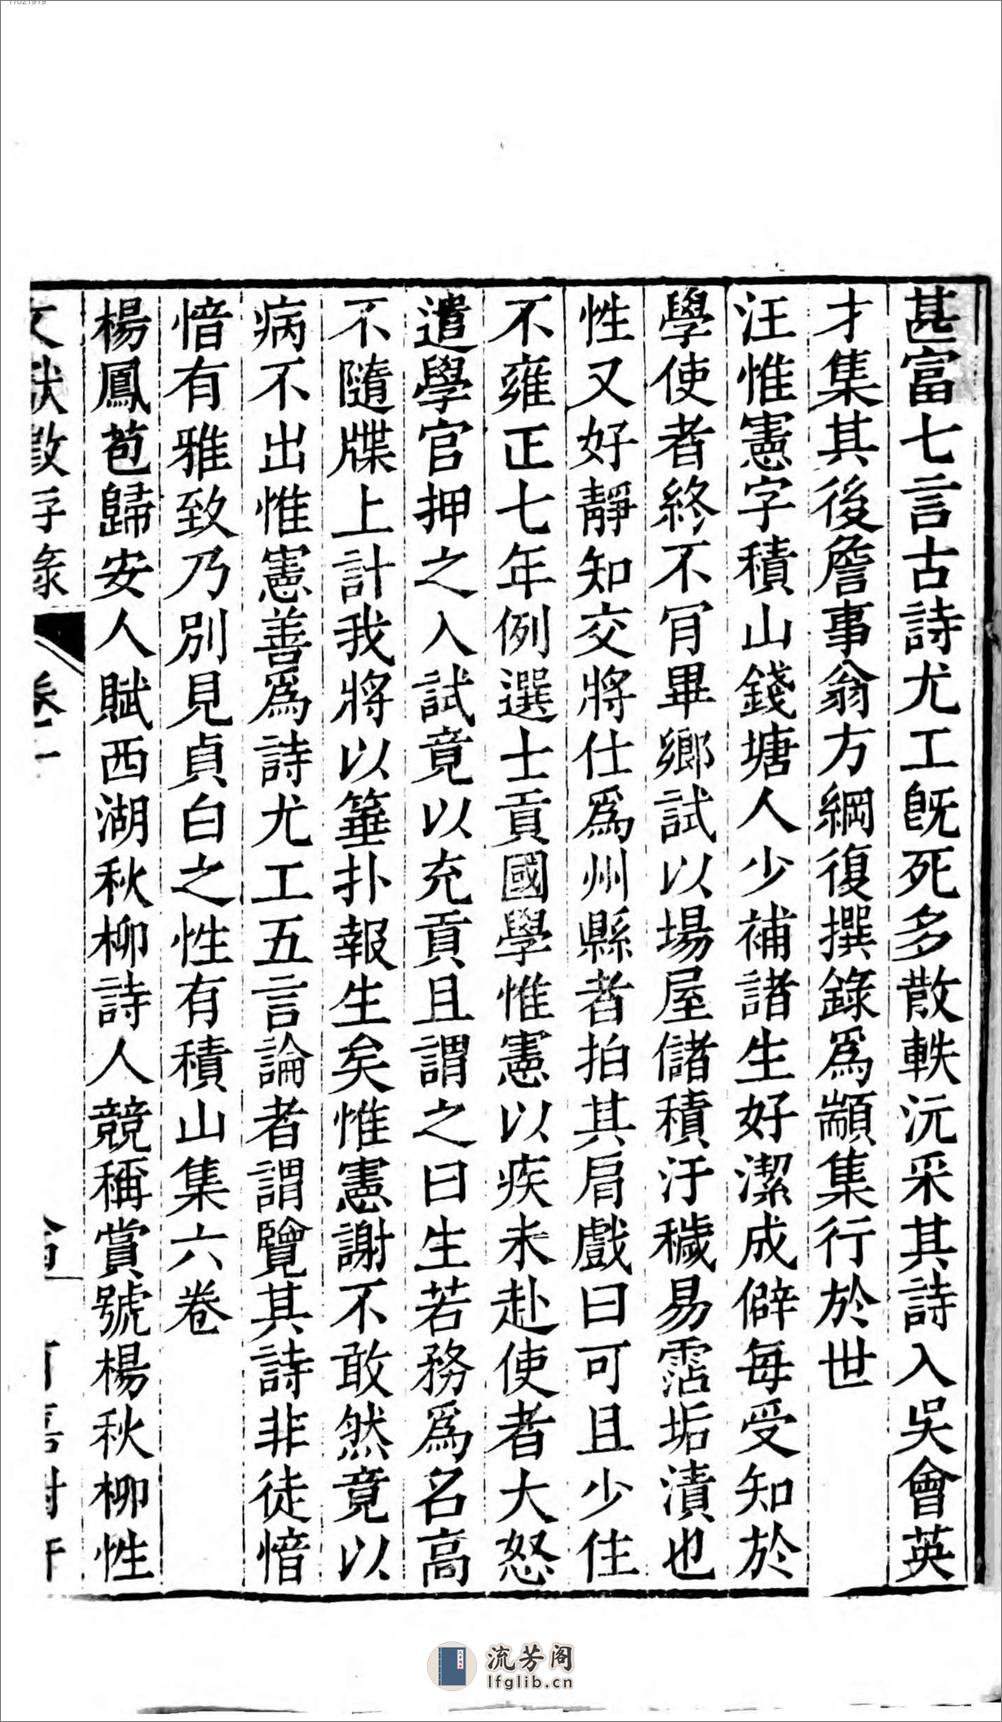 11021919
甚富七言古詩尤工旣死多散軼沅采其詩入吳會英
才集其後詹事翁方綱復撰錄爲顓集行於世
汪惟憲字積山錢塘人少補諸生好潔成僻每受知於
學使者終不肎畢鄉試以場屋儲積汙穢易霑垢漬也
性又好靜知交將仕爲州縣者拍其肩戲曰可且少住
不雍正七年例選士貢國學惟憲以疾未赴使者大怒
遣學官押之入試竟以充貢且謂之曰生若務爲名高
不隨牒上計我將以箠扑報生矣惟憲謝不敢然竟以
病不出惟憲善爲詩尤工五言論者謂覽其詩非徒愔
愔有雅致乃別見貞白之性有積山集六卷
楊鳳苞歸安人賦西湖秋柳詩人競稱賞號楊秋柳性
文獻徵存錄 卷十
流芳阁
lfglib.cn